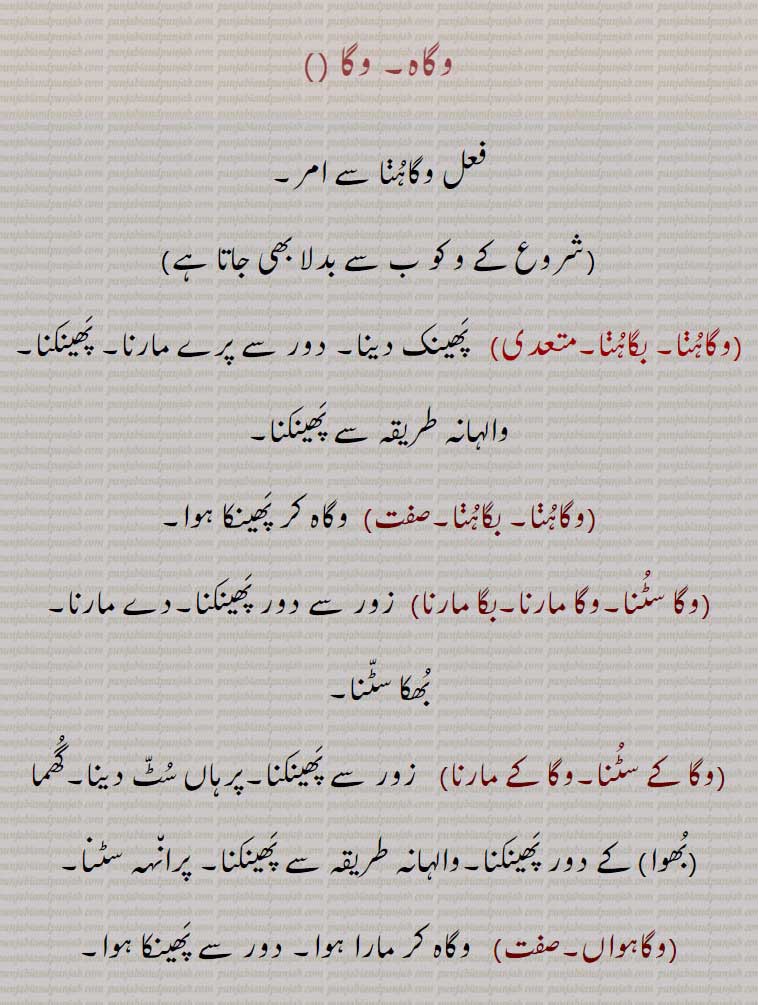 وگاہ۔ وگا ()
فعل وگاہُݨا سے امر۔
(شروع کے و کو ب سے بدلا بھی جاتا ہے)
(وگاہُݨا۔ بگاہُݨا۔متعدی) پَھینک دینا۔ دور سے پرے مارنا۔ پَھینکنا۔
والہانہ طریقہ سے پَھینکنا۔
(وگاہُݨا۔ بگاہُݨا۔صفت) وگاہ کر پَھینکا ہوا۔
(وگا سٹُنا۔وگا مارنا۔بگا مارنا) زور سے دور پَھینکنا۔دے مارنا۔
بُھکا سٹّنا۔
(وگا کے سٹُنا۔وگا کے مارنا) زور سے پَھینکنا۔پرہاں سُٹّ دینا۔گُھما
(بُھوا) کے دور پَھینکنا۔والہانہ طریقہ سے پَھینکنا۔ پرانّہہ سٹنا۔
(وگاہواں۔صفت) وگاہ کر مارا ہوا۔ دور سے پَھینکا ہوا۔